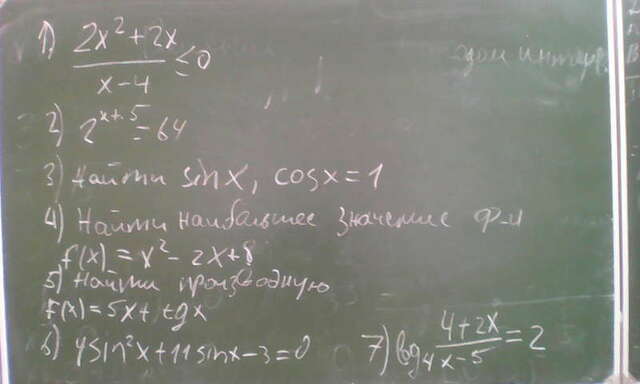 1) (2x² + 2x)/(x - 4) ≤ 0
2) 2^(x+5) = 64
3) Найти sin x, cos x = 1
4) Найти наибольшее значение ф-и
f(x) = x² - 2x + 8
5) Найти производную
f(x) = 5x + tg x
6) 4 sin²x + 11 sin x - 3 = 0
7) log₄ (4 + 2x)/(x - 5) = 2